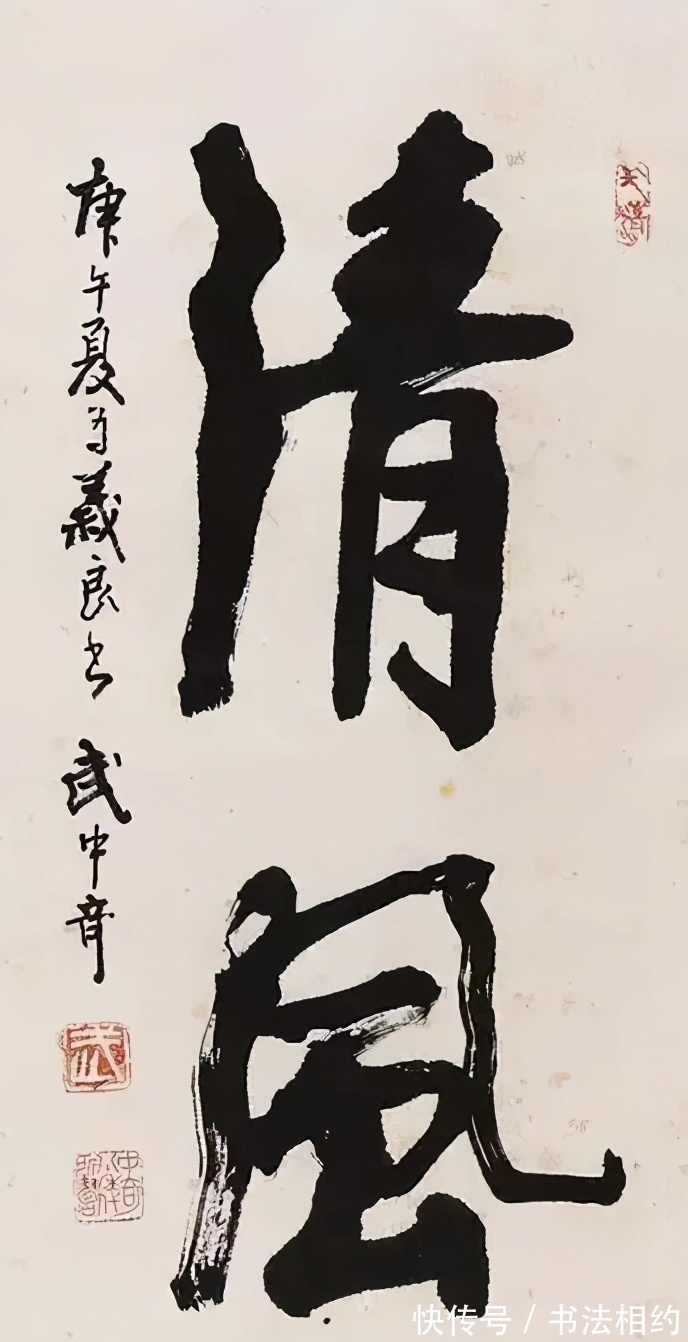 清風
庚午夏为義良书 武中奇
快传号 / 书法相约